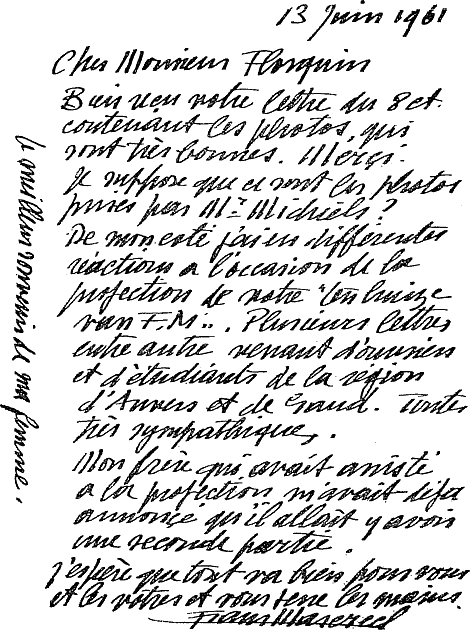 13 Juin 1961
Cher Monsieur Florquin
Bien reçu votre lettre du 8 et
contenant les photos, qui
sont très bonnes. Merci.
Je suppose que ce sont les photos
prises par Mr Michiels?
De mon coté j'ai eu différentes
réactions a l'occasion de la
projection de votre "ten huize
van F.M.". Plusieurs lettres
entre autre venant d'ouvriers
et d'étudiants de la région
d'Anvers et de Gand. Toutes
très sympathiques.
Mon frère qui avait assisté
a la projection m'avait déjà
annoncé qu'il allait y avoir
une seconde partie.
J'espère que tout va bien pour vous
et les votres et vous serre les mains.
Frans Masereel
le meilleur souvenir de ma femme.